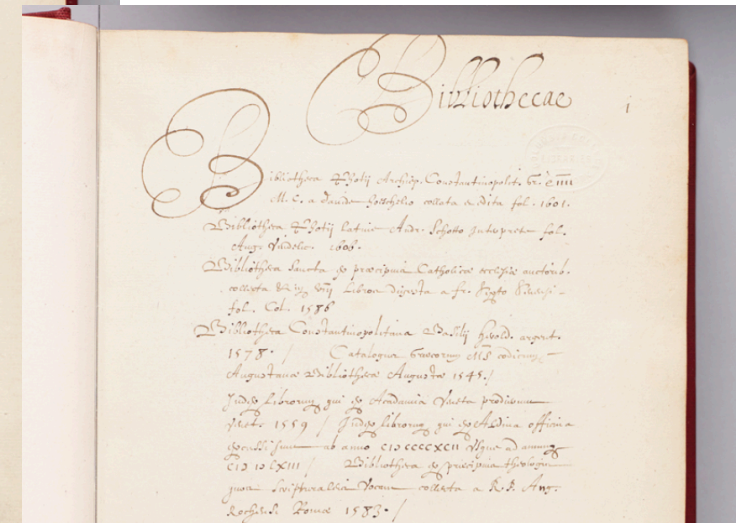 Bibliothecae
1
Bibliotheca Photij Archiep. Constantinopolit. Gr. e IIII
M. C. a Davide Hoeschelio collata et edita fol. 1601.
Bibliotheca Photij latine Andr. Schotto Interprete fol.
Aug. Vindelic. 1606.
Bibliotheca Sancta ex præcipuis Catholicæ ecclesiæ auctorib.
collecta et in VIII Libros digesta a fr. Sixto Senensi
fol. Col. 1586
Bibliotheca Constantinopolitana Basilij Herold. argent.
1578. / Catalogus Græcorum MS codicum
Augustanæ Bibliothecæ Augustæ 1545. /
Index Librorum qui ex Academia Veneta prodierunt
Venet. 1559 / Index librorum qui ex Aldina officina
ab anno usque ad annum
/ Bibliotheca ex præcipuis
collecta a R. P. Ang.
Romæ 1583. /